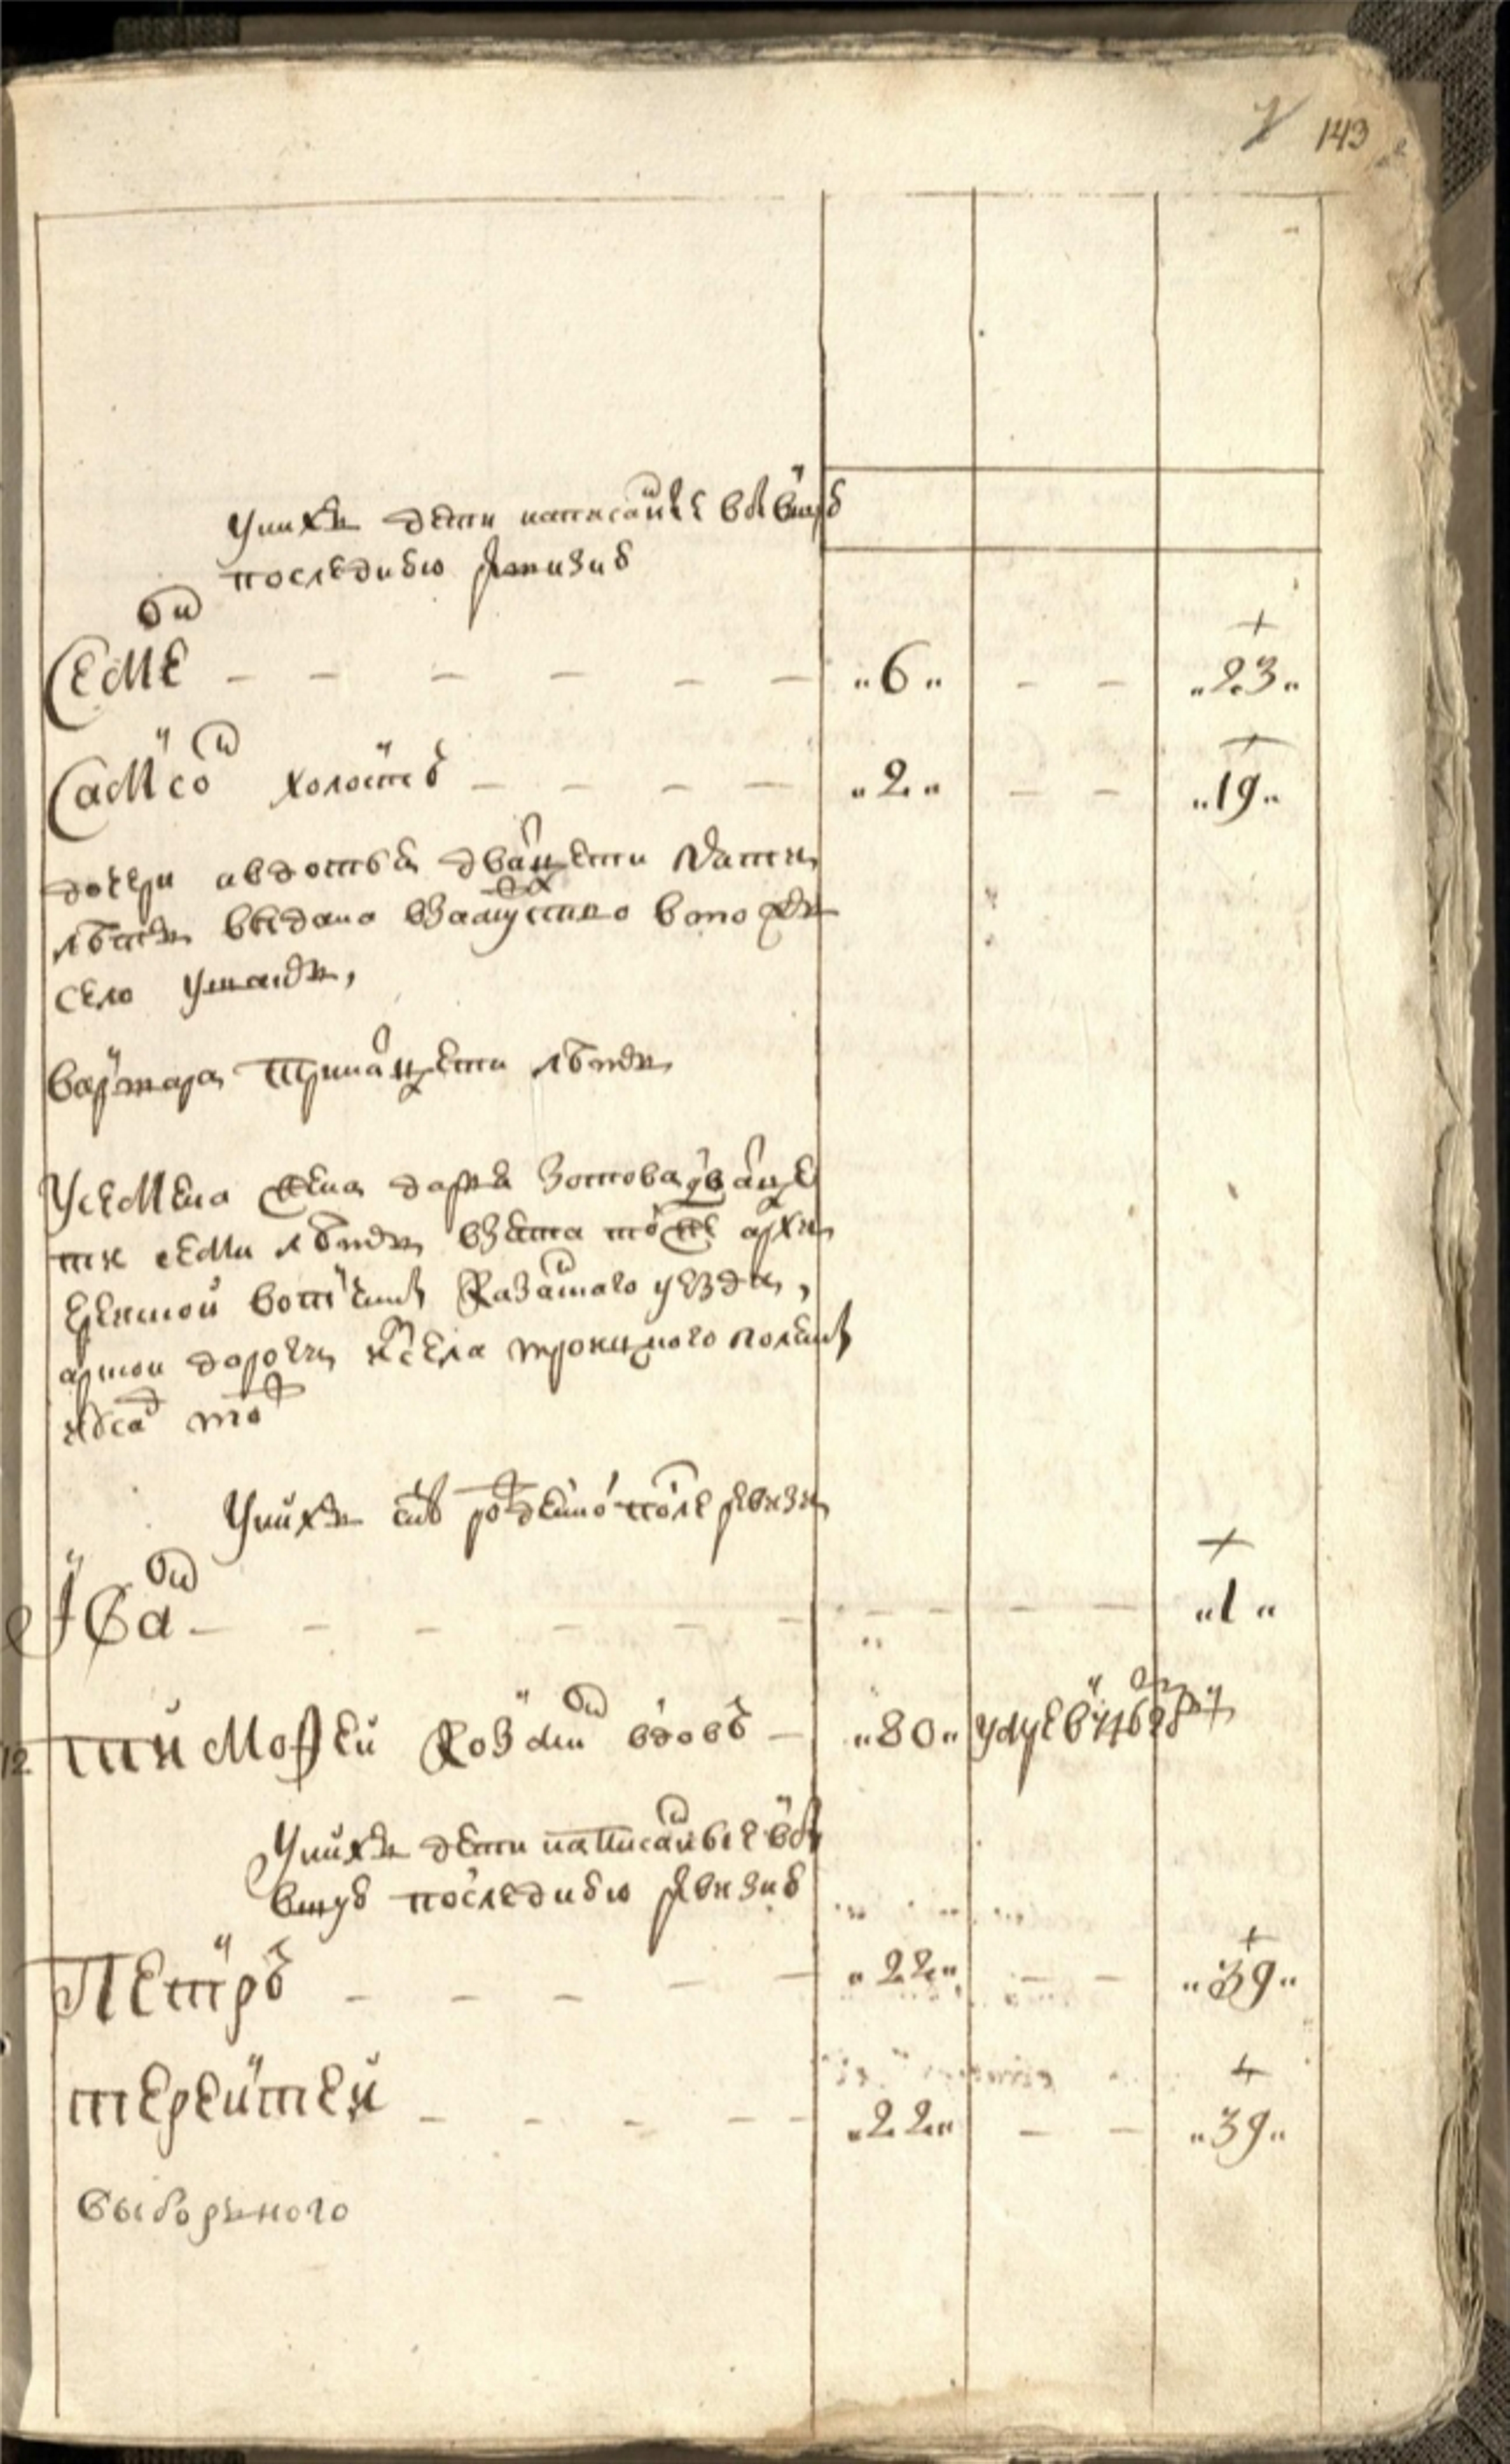 143
у них дети написанные в вытору
последнюю ревизию
Семен - - - - - - „6„ - - „23„
Самсон холост - - - - „2„ - - „19„
дочери авдотья двацети пети
летъ выдана взамужство в тожъ
село
варвара тринацети летъ
У семена жена дарья зотова двацe
ти семи летъ взята тоже архи
ерейской вотчины казанского уезду,
арской дороги ис села троицкого
У них сынъ рожденной после ревизи
Иван - - - - - - - - - - „1„
12 тимофей козмин вдовъ - „80„ умре в 746 году
У них дети написанные в
втору последнюю ревизию
Петръ - - - - - „22„ - - „39„
терентей - - - - - „22„ - - „39„
выборного